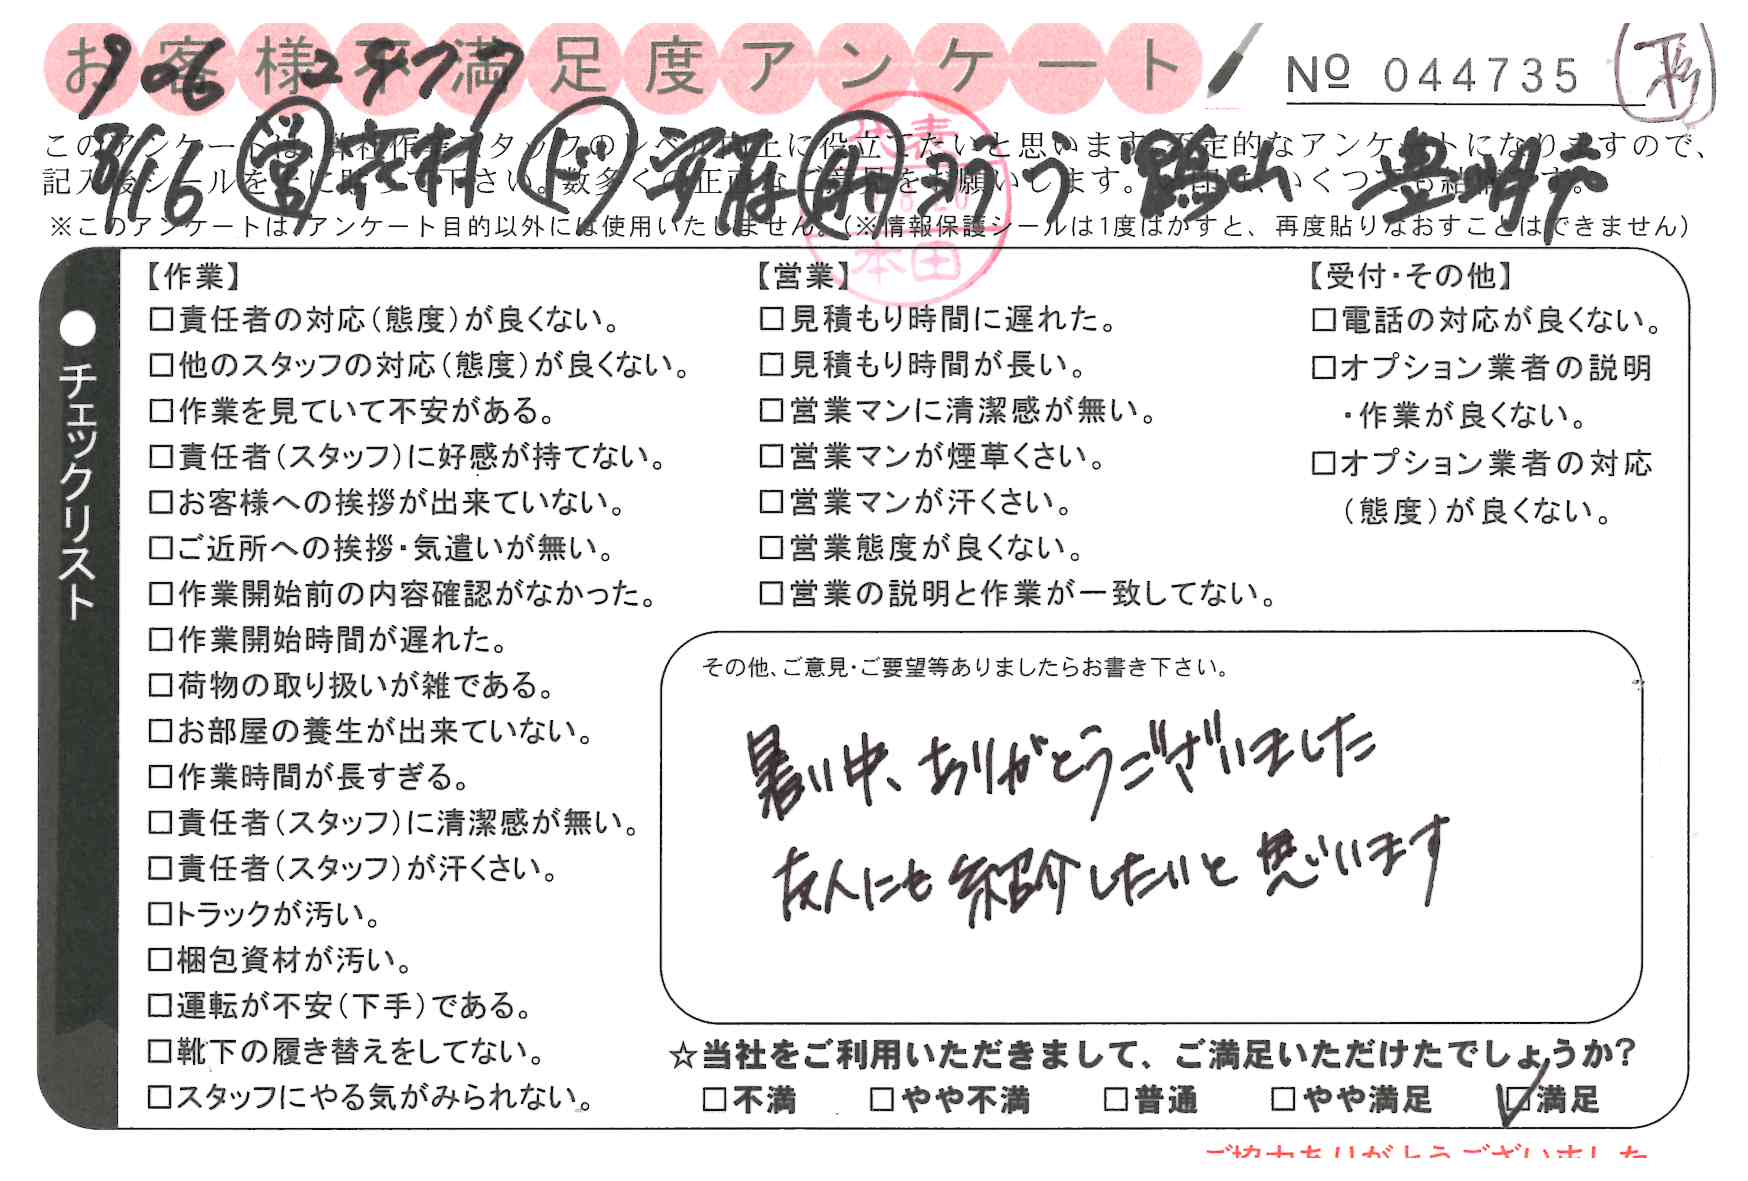 お客様不満足度アンケート
No 044735
906 2977
8/16 営 ド 助 豊明市
このアンケートは、弊社作業スタッフのレベル向上に役立てたいと思います。否定的なアンケートになりますので、
記入後シールを上に貼って下さい。数多くの正直なご意見をお願いします。
※このアンケートは、アンケート目的以外には使用いたしません。(※情報保護シールは1度はがすと、再度貼りなおすことはできません)
本田
●チェックリスト
【作業】
□責任者の対応(態度)が良くない。
□他のスタッフの対応(態度)が良くない。
□作業を見ていて不安がある。
□責任者(スタッフ)に好感が持てない。
□お客様への挨拶が出来ていない。
□ご近所への挨拶・気遣いが無い。
□作業開始前の内容確認がなかった。
□作業開始時間が遅れた。
□荷物の取り扱いが雑である。
□お部屋の養生が出来ていない。
□作業時間が長すぎる。
□責任者(スタッフ)に清潔感が無い。
□責任者(スタッフ)が汗くさい。
□トラックが汚い。
□梱包資材が汚い。
□運転が不安(下手)である。
□靴下の履き替えをしてない。
□スタッフにやる気がみられない。
【営業】
□見積もり時間に遅れた。
□見積もり時間が長い。
□営業マンに清潔感が無い。
□営業マンが煙草くさい。
□営業マンが汗くさい。
□営業態度が良くない。
□営業の説明と作業が一致してない。
【受付・その他】
□電話の対応が良くない。
□オプション業者の説明
・作業が良くない。
□オプション業者の対応
(態度)が良くない。
その他、ご意見・ご要望等ありましたらお書き下さい。
暑い中、ありがとうございました
友人にも紹介したいと思います
☆当社をご利用いただきまして、ご満足いただけたでしょうか?
□不満 □やや不満 □普通 □やや満足 □満足
ご協力ありがとうございました